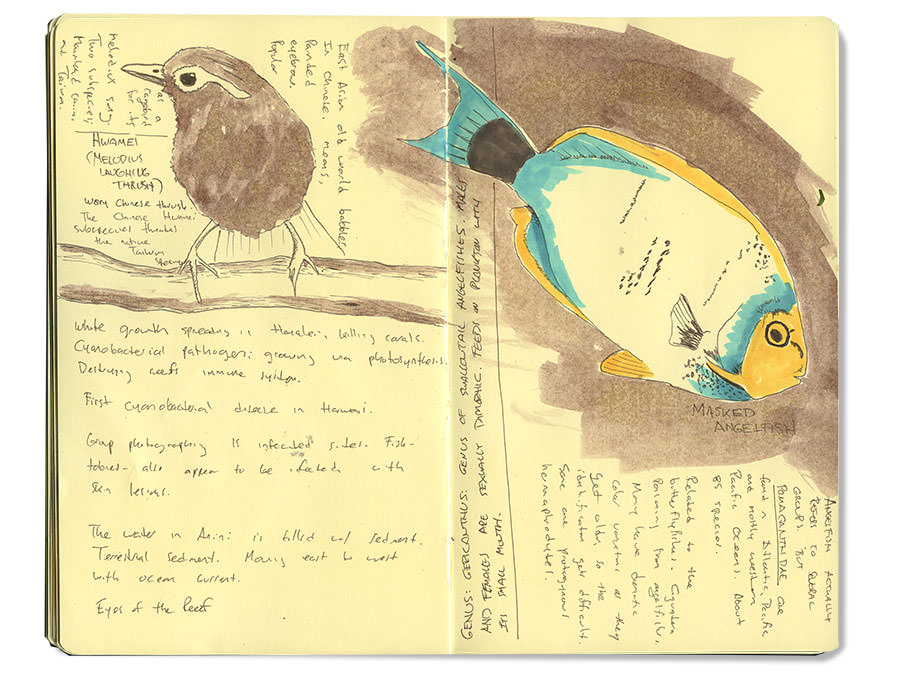 East Asian old world babbler.
In Chinese, means,
Painted
eyebrow.
Popular
as a
cagebird
for its
melodius song.
Two subspecies;
Mainland
and Taiwan.
HWAMEI
(MELODIUS
LAUGHING
THRUSH)
Chinese thrush.
The Chinese Hwamei
subspecies threatens
the native
Taiwan
species
White growth spreading in Hanalei, killing corals.
Cyanobacterial pathogen; growing via photosynthesis.
Destroying reefs immune system.
First cyanobacterial disease in Hawaii.
Group photographing is infected sites. Fish-
tobies- also appear to be infected with
skin lesions.
The water in Anini is filled w/ sediment.
Terrestrial sediment. Moving east to west
with ocean current.
Eyes of the Reef
GENUS: GENICANTHUS: GENUS OF SWALLOWTAIL ANGELFISHES. MALES
AND FEMALES ARE SEXUALLY DIMORPHIC. FEEDS IN PLANKTON WITH
ITS SMALL MOUTH.
MASKED
ANGELFISH
ANGELFISH ACTUALLY
REFERS TO SEVERAL
GROUPS BUT
POMACANTHIDAE are
found in Atlantic, Pacific
and mostly western
Pacific Oceans. About
85 species.
Related to the
butterflyfishes.
from angelfish.
Many have dramatic
color variations as they
get older, so the
identification gets difficult.
Some are protogynous
hermaphrodites.